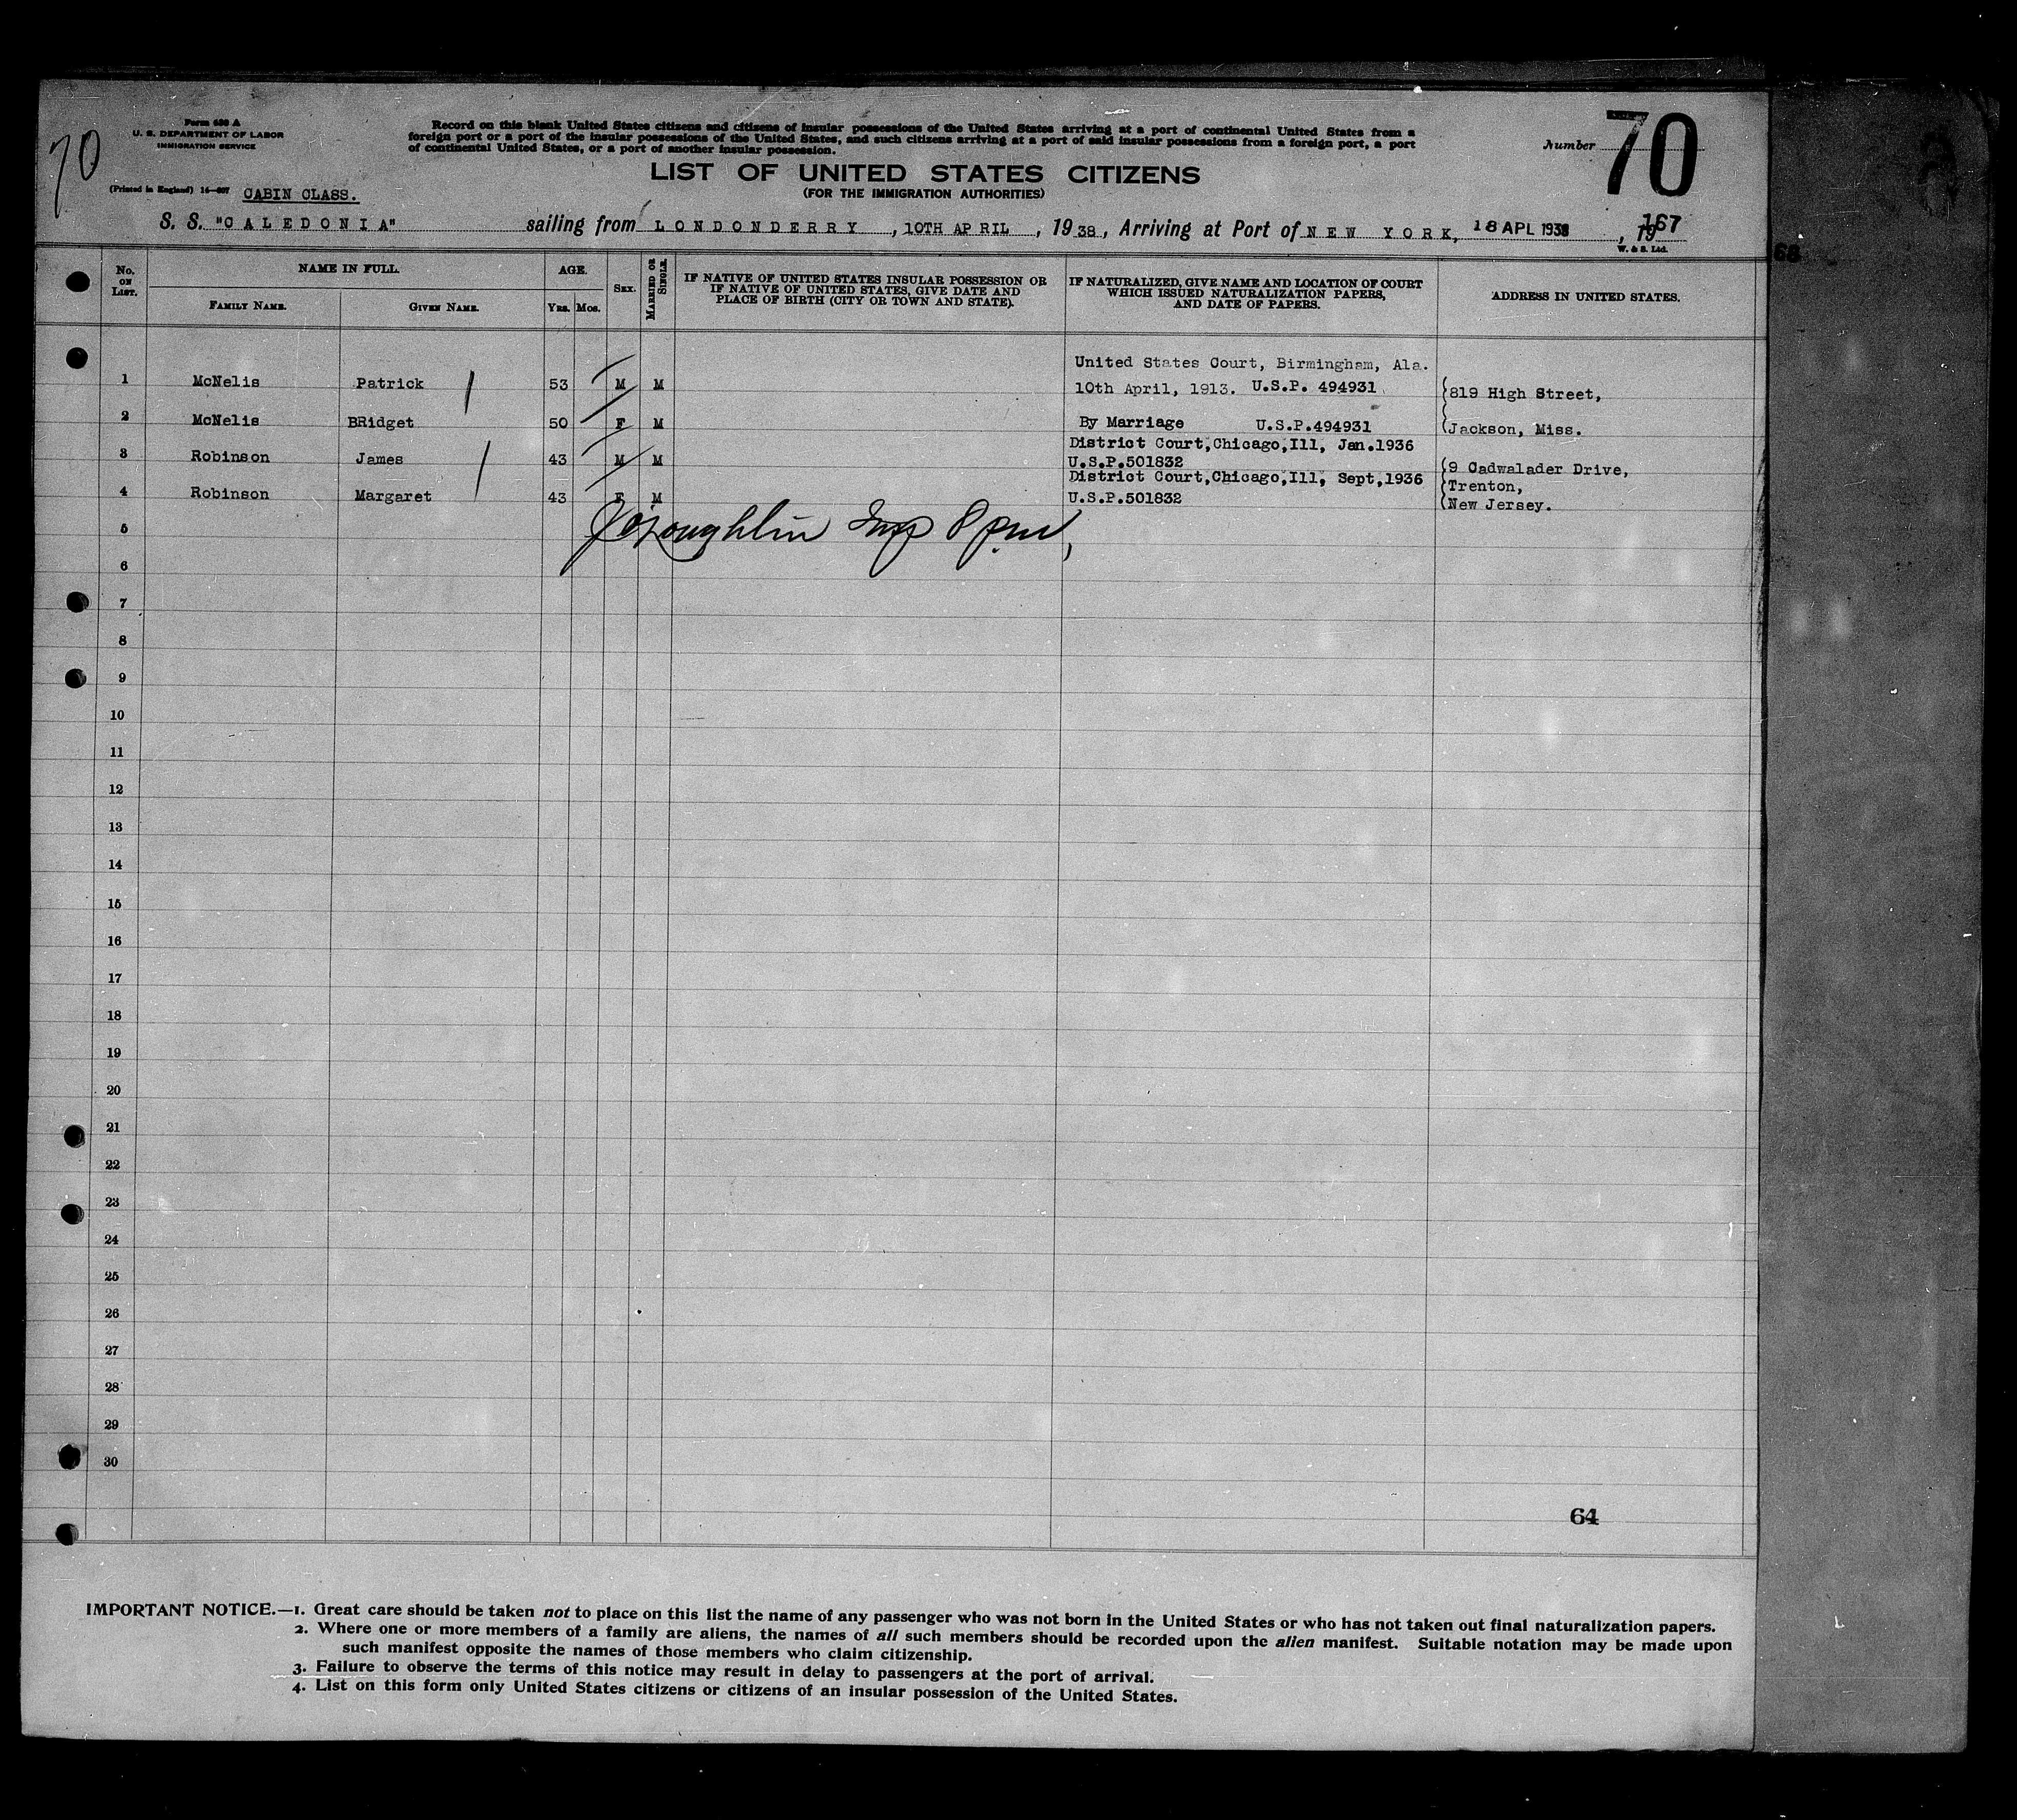 70
Form 630 A
U. S. DEPARTMENT OF LABOR
IMMIGRATION SERVICE
(Printed in England)
CABIN CLASS.
Record on this blank United States citizens and citizens of insular possessions of the United States arriving at a port of continental United States from a
foreign port or a port of the insular possessions of the United States, and such citizens arriving at a port of said insular possessions from a foreign port, a port
of continental United States, or a port of another insular possession.
LIST OF UNITED STATES CITIZENS
(FOR THE IMMIGRATION AUTHORITIES)
Number 70
S. S. "CALEDONIA" sailing from LONDONDERRY, 10TH APRIL, 1938, Arriving at Port of NEW YORK, 18 APL 1938, 19
167
W. & S. Ltd.
68
No. ON LIST. NAME IN FULL. AGE. SEX. MARRIED OR SINGLE. IF NATIVE OF UNITED STATES INSULAR POSSESSION OR IF NATIVE OF UNITED STATES, GIVE DATE AND PLACE OF BIRTH (CITY OR TOWN AND STATE). IF NATURALIZED, GIVE NAME AND LOCATION OF COURT WHICH ISSUED NATURALIZATION PAPERS, AND DATE OF PAPERS. ADDRESS IN UNITED STATES.
FAMILY NAME. GIVEN NAME. YRS. MOS.
United States Court, Birmingham, Ala.
1 McNelis Patrick 53 M M 10th April, 1913. U.S.P. 494931 (819 High Street,
2 McNelis BRidget 50 F M By Marriage U.S.P.494931 (Jackson, Miss.
District Court,Chicago,Ill, Jan.1936
3 Robinson James 43 M M U.S.P.501832 (9 Cadwalader Drive,
District Court,Chicago,Ill, Sept,1936 (Trenton,
4 Robinson Margaret 43 F M U.S.P.501832 (New Jersey.
5 O'Loughlin Insp 8 pm
6
7
8
9
10
11
12
13
14
15
16
17
18
19
20
21
22
23
24
25
26
27
28
29
30
64
IMPORTANT NOTICE.—1. Great care should be taken not to place on this list the name of any passenger who was not born in the United States or who has not taken out final naturalization papers.
2. Where one or more members of a family are aliens, the names of all such members should be recorded upon the alien manifest. Suitable notation may be made upon
such manifest opposite the names of those members who claim citizenship.
3. Failure to observe the terms of this notice may result in delay to passengers at the port of arrival.
4. List on this form only United States citizens or citizens of an insular possession of the United States.